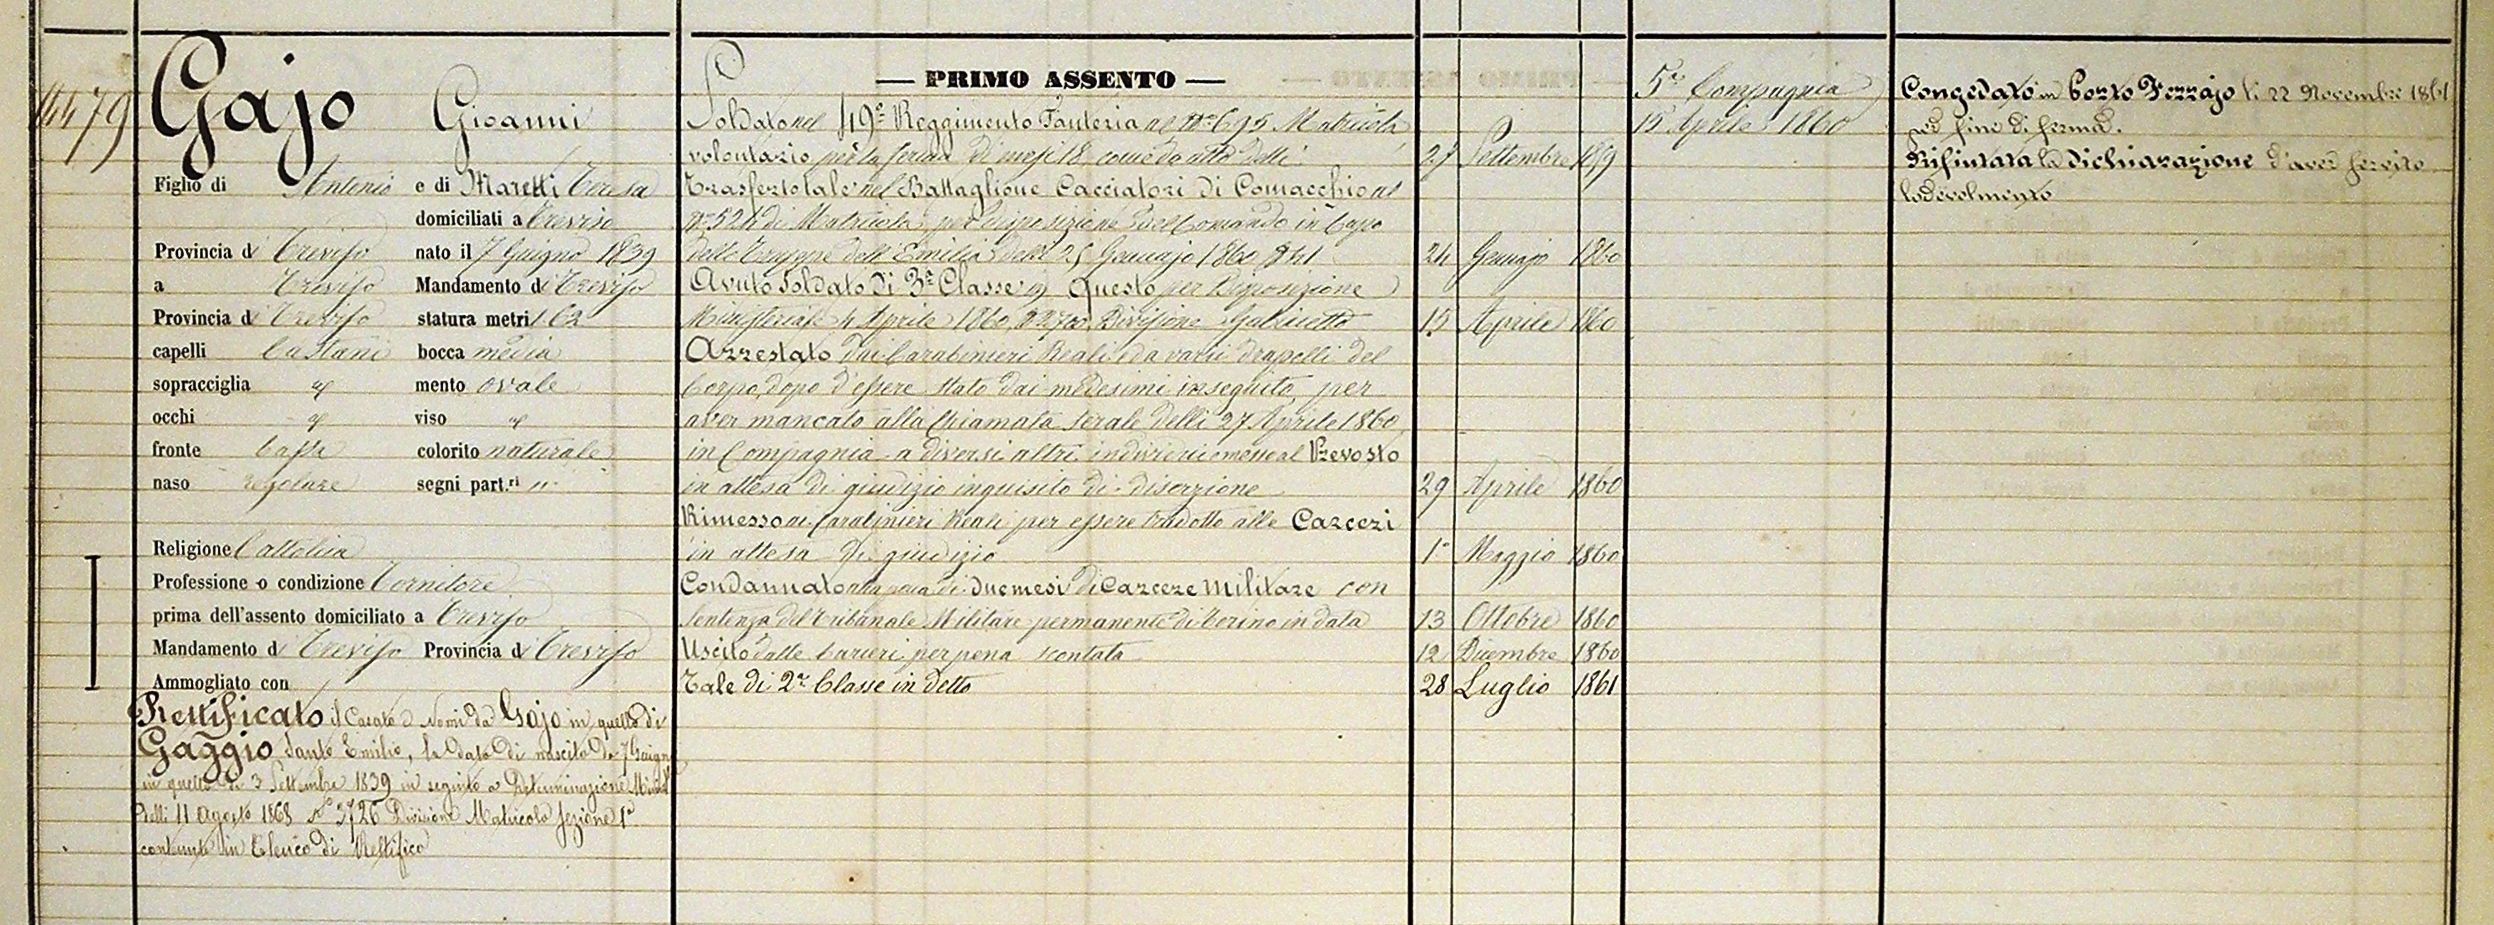 14479
Gajo Gioanni
Figlio di Antonio e di Maretti Teresa
domiciliati a Treviso
Provincia di Treviso nato il 7 Giugno 1839
a Treviso Mandamento di Treviso
Provincia di Treviso statura metri 1.62
capelli Castani bocca media
sopracciglia id mento ovale
occhi id viso id
fronte bassa colorito naturale
naso regolare segni part.ri "
Religione Cattolica
Professione o condizione Tornitore
prima dell'assento domiciliato a Treviso
Mandamento di Treviso Provincia di Treviso
Ammogliato con
Rettificato il Casato e Nomi da Gajo in quello di
Gaggio Santo Emilio, la data di nascita da 7 Giugno
in quella di 3 Settembre 1839 in seguito a Determinazione Minist.
delli 11 Agosto 1868 N° 3726 Divisione Matricola Sezione 1a
contenuta in Elenco di Rettifico
— PRIMO ASSENTO —
Soldato nel 49° Reggimento Fanteria al N° 695 Matricola
volontario per la ferma di mesi 18 come da atto delli 27 Settembre 1859
Trasferto tale nel Battaglione Cacciatori di Comacchio al
N° 524 di Matricola, per disposizione del Comando in Capo
delle Truppe dell'Emilia delli 25 Gennajo 1860 N 41 24 Gennajo 1860
Avuto soldato di 3a Classe in questo per Disposizione
Ministeriale 4 Aprile 1860 N 2700 Divisione Gabinetto 15 Aprile 1860
Arrestato dai Carabinieri Reali e da varii drapelli del
Corpo, dopo d'essere stato dai medesimi inseguito, per
aver mancato alla Chiamata serale delli 27 Aprile 1860,
in Compagnia a diversi altri individui e messo al Prevosto
in attesa di giudizio inquisito di diserzione 29 Aprile 1860
Rimesso ai Carabinieri Reali per essere tradotto alle Carceri
in attesa di giudizio 1° Maggio 1860
Condannato alla pena di due mesi di Carcere Militare con
Sentenza del Tribunale Militare permanente di Torino in data 13 Ottobre 1860
Uscito dalle Carceri per pena scontata 12 Dicembre 1860
Tale di 2a Classe in detto 28 Luglio 1861
5a Compagnia
15 Aprile 1860
Congedato in Porto Ferrajo li 22 Novembre 1861
per fine di ferma.
Rifiutata la dichiarazione d'aver servito
lodevolmente